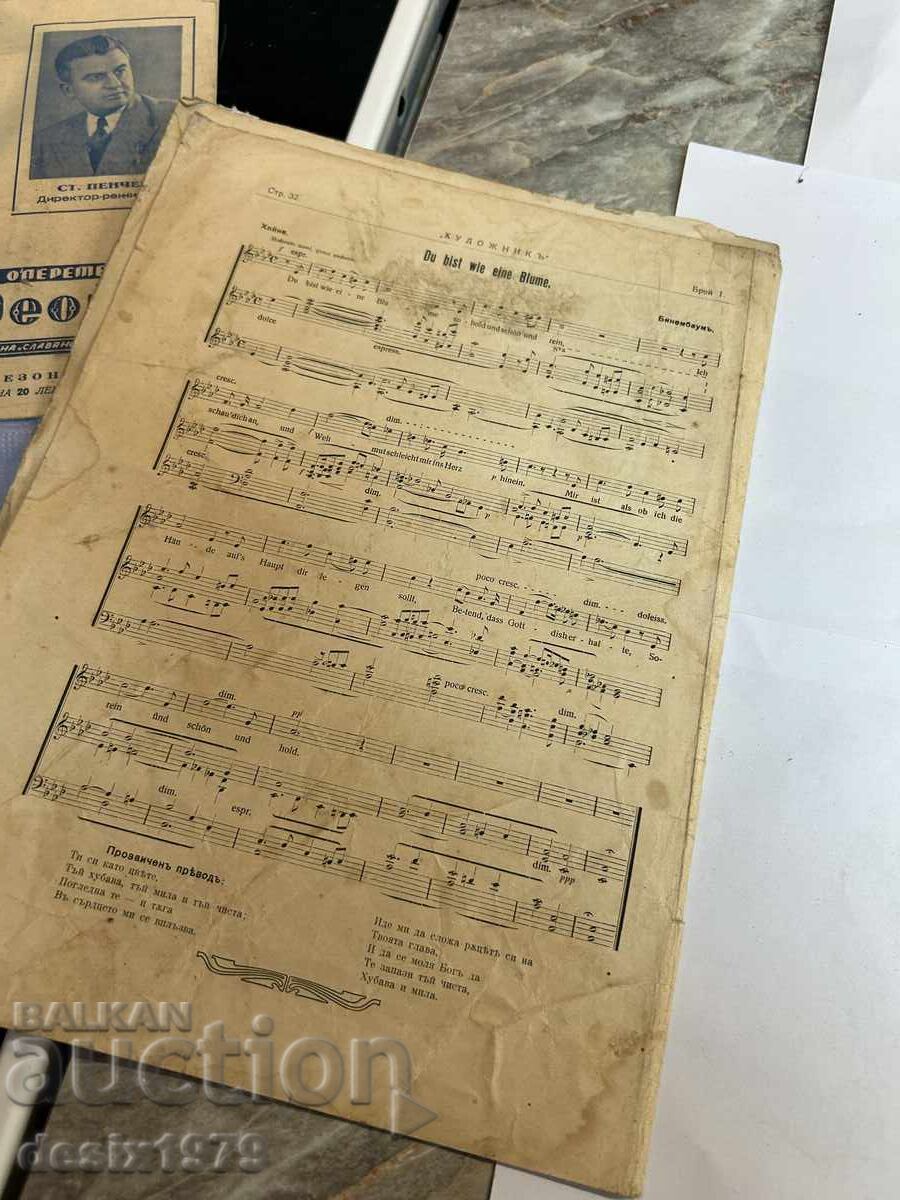 СТ. ПЕНЧЕ
Директор-режи
ОПЕРЕТЕ
НА „СЛАВЯН
ЕЗОН
НА 20 ЛЕ
Стр. 32
„ХУДОЖНИКЪ“
Брой 1.
Хайне.
Du bist wie eine Blume.
Биненбаумъ.
espr.
Du bist wie ei - ne Blu - me so hold und schön und rein, Ich
dolce
express.
cresc. dim.
schau' dich an, und Weh mut schleicht mir ins Herz hinein. Mir ist als ob ich die
p
cresc. dim. p p
poco cresc. dim. dolciss.
Hän - de auf's Haupt dir le - gen sollt, Be-tend, dass Gott dich er - hal - te, So-
poco cresc. dim.
dim. pp
rein und schön und hold.
dim. espr. dim. ppp
Прозаиченъ прѣводъ:
Ти си като цвѣте,
Тъй хубава, тъй мила и тъй чиста;
Погледна те — и тѫга
Въ сърдцето ми се вплъзва.
Иде ми да сложа рѫцѣтѣ си на
Твоята глава,
И да се моля Богъ да
Те запази тъй чиста,
Хубава и мила.
BALKAN
auction
desix1979